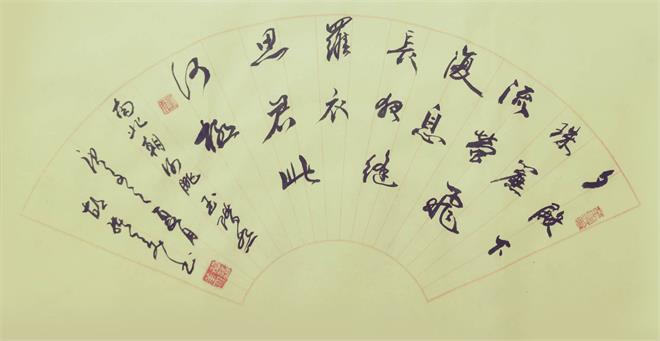 夕殿下
珠簾
流螢飛
復息
長夜縫
羅衣
思君此
何極
南北朝谢朓玉階怨
夏月
书